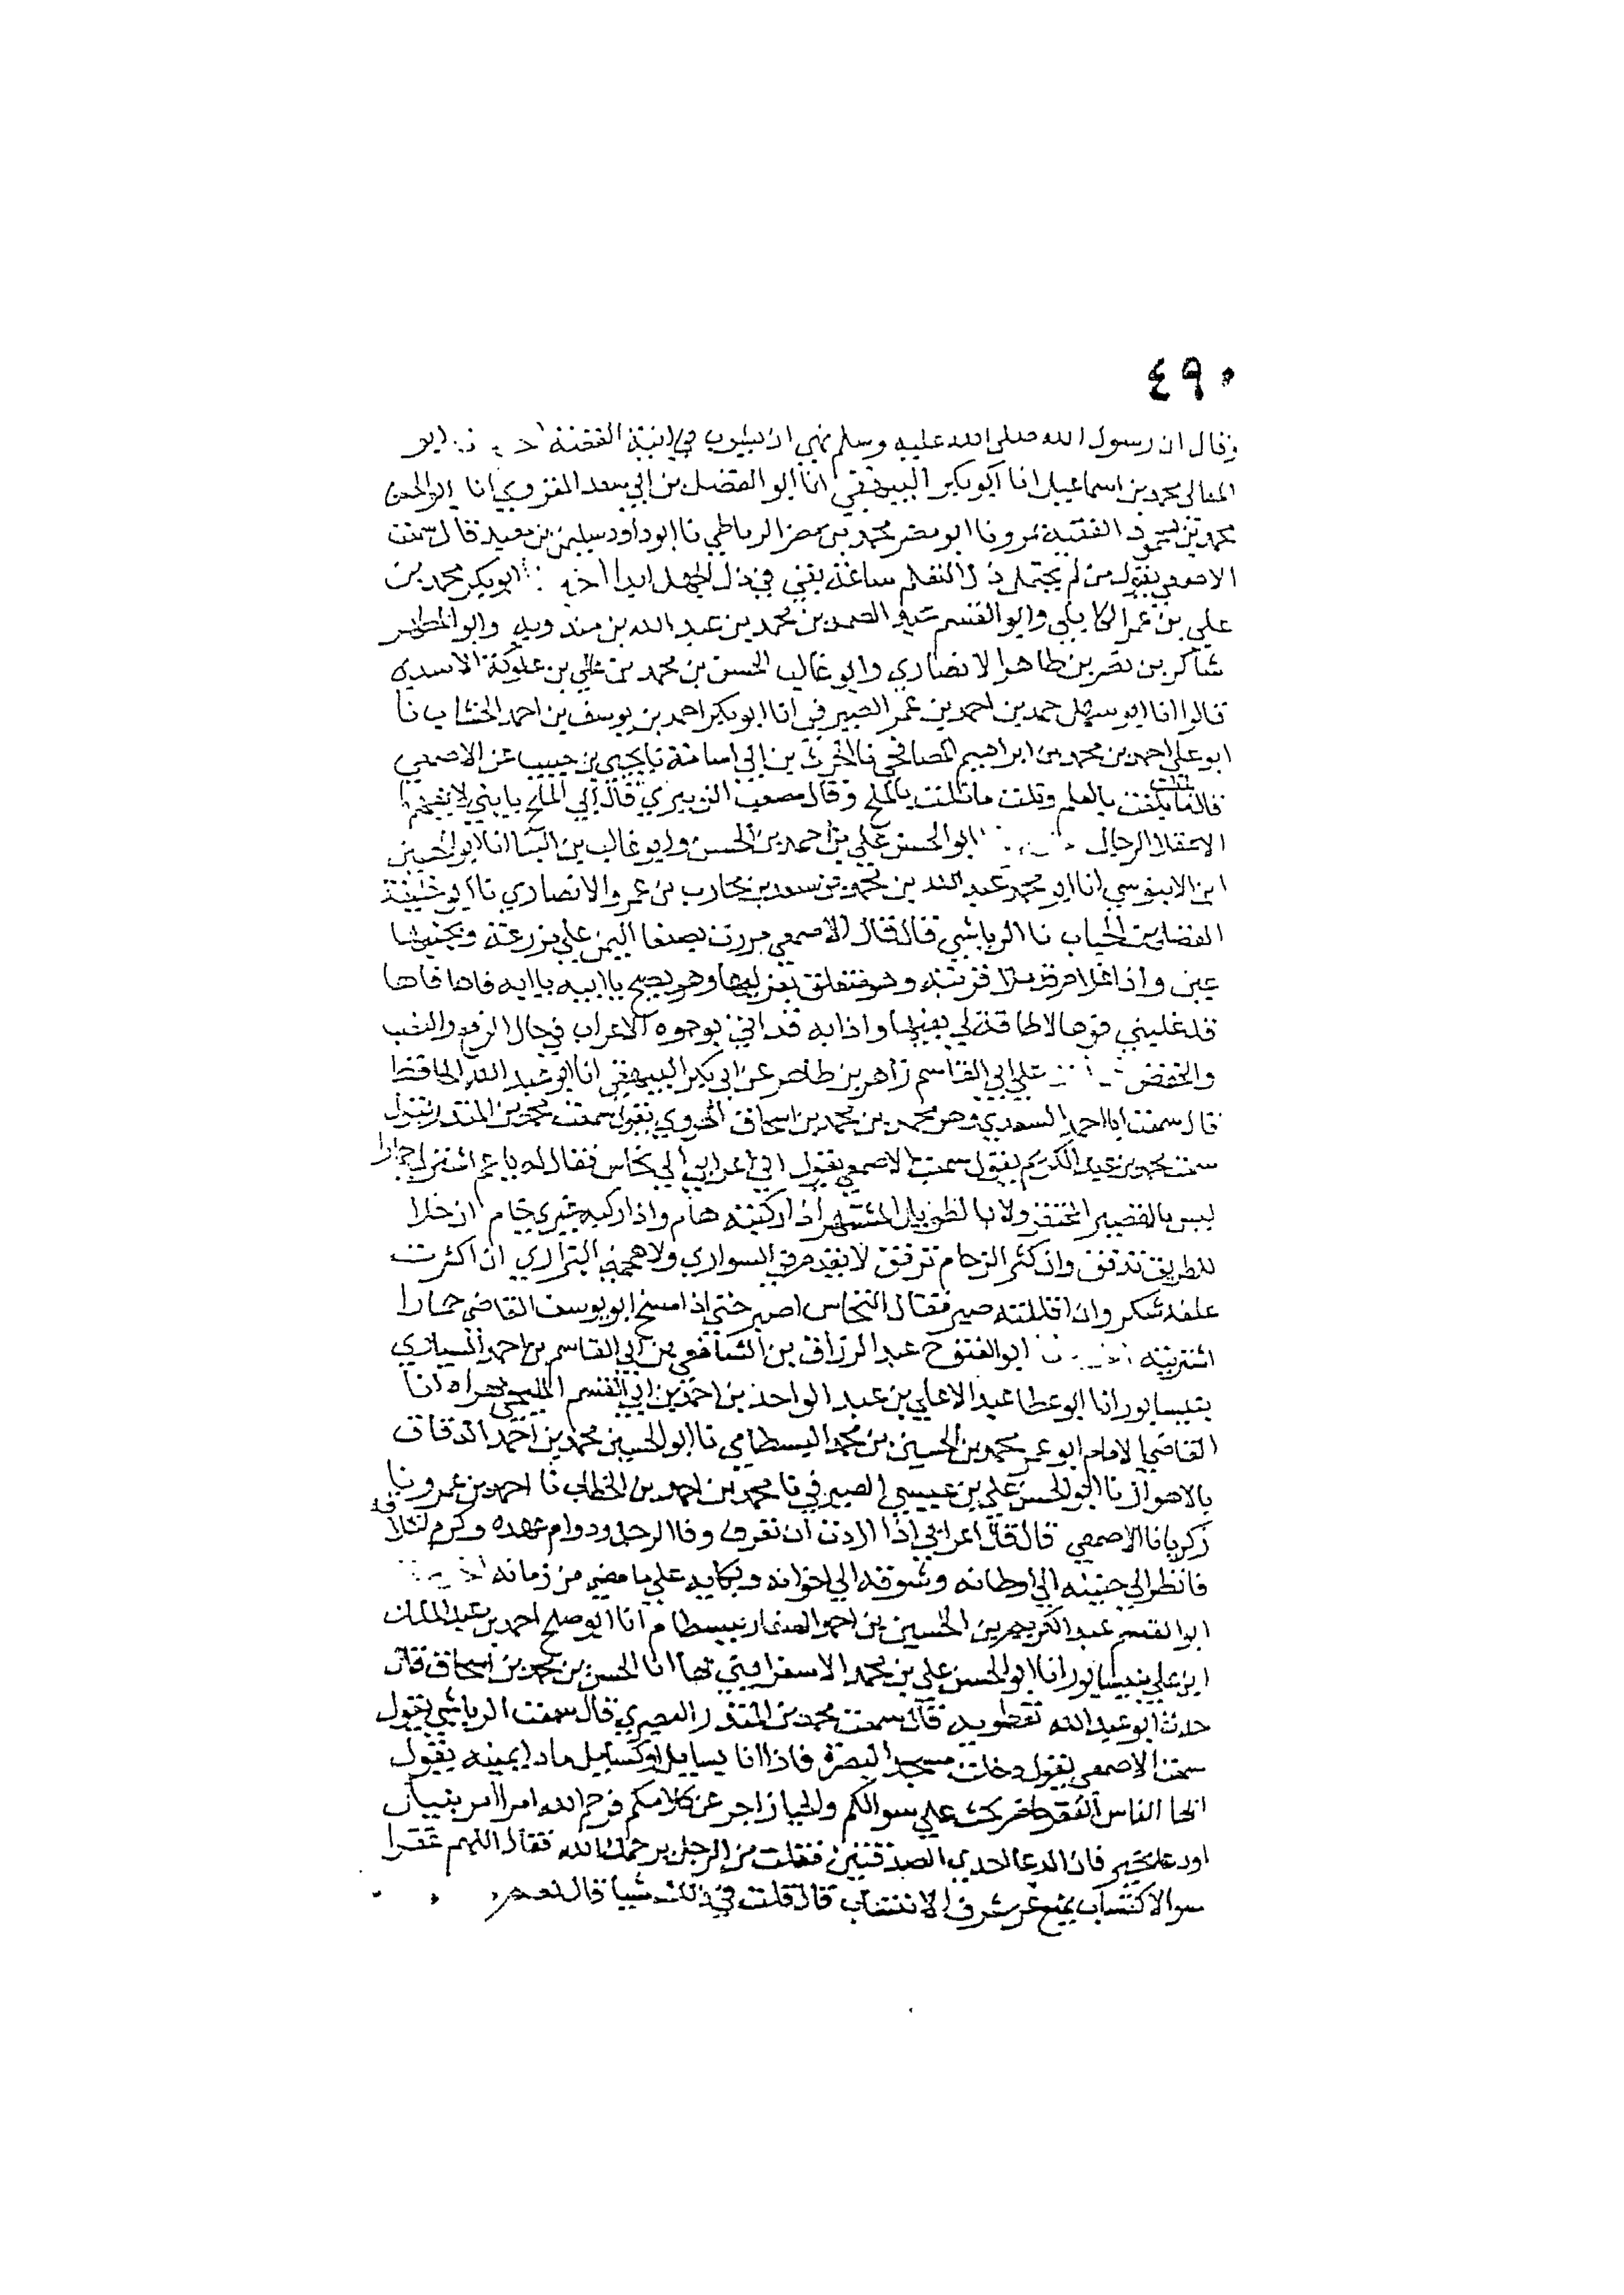 ٤٩٠
وقال ان رسول الله صلى الله عليه وسلم نهى ان يشرب في انية الفضة ابو
المعالي محمد بن اسماعيل انا ابو بكر البيهقي انا ابو الفضل بن ابي سعد الهروي انا ابو الحسن
محمد بن محمود الفقيه بمرو نا ابو مضر محمد بن مضر الرباطي نا ابو داود سليمن بن معبد قال سمعت
الاصمعي يقول من لم يحتمل ذل التعلم ساعة بقي في ذل الجهل ابدا ابو بكر محمد بن
علي بن عمر الكابلي وابو القسم عبد الصمد بن محمد بن عبد الله بن مندويه وابو المطهر
شاكر بن نصر بن طاهر الانصاري وابو غالب الحسن بن محمد بن علي بن علوكة الاسدي
قالوا انا ابو سهل حمد بن احمد بن عمر الصيرفي انا ابو بكر احمد بن يوسف بن احمد الخشاب نا
ابو علي احمد بن محمد بن ابراهيم المصاحفي نا الحرث بن ابي اسامة نا يحيى بن حبيب عن الاصمعي
قال بلغت ما بلغت بالعلم ونلت ما نلت بالملح وقال مصعب الزبيري قال ابي الملح يا بني لا يفهمها
الا عقلا الرجال ابو الحسن علي بن احمد بن الحسن وابو غالب بن البنا انا ابو الحسين
ابن الابنوسي انا ابو محمد عبد الله بن محمد بن سعد بن محارب بن عمرو الانصاري نا ابو خليفة
الفضل بن الحباب نا الرياشي قال قال الاصمعي مررت بصنعا اليمن على مزرعة وبجنبها
عين واذا غلام قد ملا قربته وهو متعلق بعزليها وهو يصيح يا ابه يا ابه فاها فاها
قد غلبني فوها لا طاقة لي بفيها واذا به قد اتى بوجوه الاعراب في حال الرفع والنصب
والخفض على ابي القاسم زاهر بن طاهر عن ابي بكر البيهقي انا ابو عبد الله الحافظ
قال سمعت ابا احمد السعدي وهو محمد بن محمد بن اسحاق الهروي يقول سمعت محمد بن المنذر يقول
سمعت محمد بن عبد الكريم يقول سمعت الاصمعي يقول اتى اعرابي الى نخاس فقال له يا عم اشتر لي حمارا
ليس بالقصير المحتقر ولا بالطويل المشتهر اذا ركبته هام واذا ركبه غيري نام ان خلا
الطريق تدفق وان كثر الزحام ترفق لا يقدم في السواري ولا البراري ان اكثرت
علفه شكر وان اقللته صبر فقال النخاس اصبر حتى اذا مسخ ابو يوسف القاضي حمارا
اشتريته ابو الفتوح عبد الرزاق بن الشافعي بن ابي القاسم بن احمد السياري
بنيسابور انا ابو عطا عبد الاعلي بن عبد الواحد بن احمد بن ابي القسم المليحي بهراه انا
القاضي الامام ابو عمر محمد بن الحسين بن محمد البسطامي نا ابو الحسين محمد بن احمد الدقاق
بالاهواز نا ابو الحسن علي بن عيسي الصيرفي نا محمد بن احمد بن الخطاب نا احمد بن عمرو نا
زكريا نا الاصمعي قال قال اعرابي اذا اردت ان تعرف وفا الرجل ودوام عهده وكرم اخلاقه
فانظر الى حنينه الى اوطانه وشوقه الى اخوانه وبكايه على ما مضى من زمانه
ابو القسم عبد الكريم بن الحسين بن احمد الصفار ببسطام انا ابو صلح احمد بن عبد الملك
ابن علي بنيسابور انا ابو الحسن علي بن محمد الاسفرايني بها انا الحسن بن محمد بن اسحاق قال
حدث ابو عبد الله نفطويه قال سمعت محمد بن المنذر البصري قال سمعت الرياشي يقول
سمعت الاصمعي يقول دخلت مسجد البصرة فاذا انا بسايل ماد يمينه يقول
ايها الناس الفقر على سوالكم والحيا زاجر عن كلامكم فرحم الله امرا امر بنيل
او دعا بخير فان الدعا احدى الصدقتين فقلت من الرجل يرحمك الله فقال اللهم غفرا
سو الاكتساب يمنع عن شرف الانتساب قال قلت في ذلك شيا قال نعم